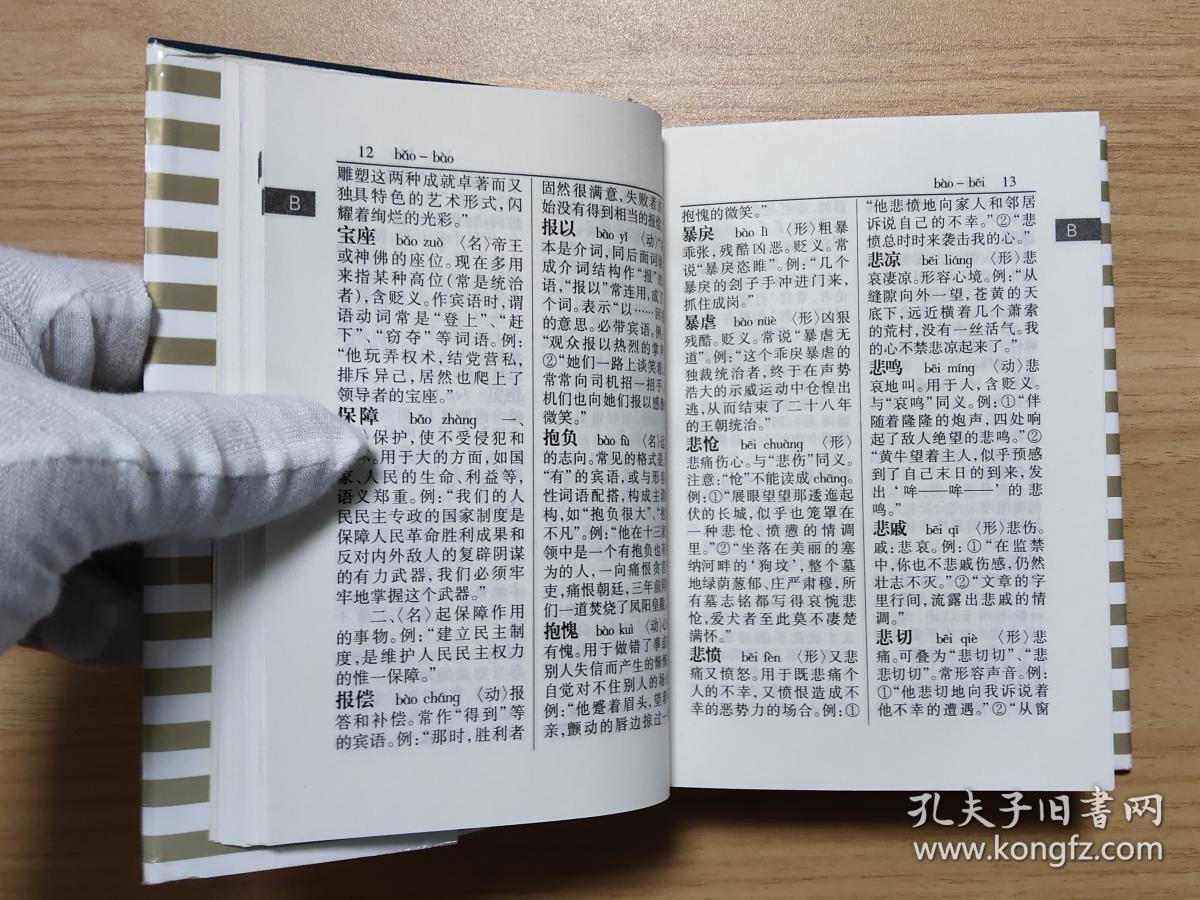 12 bǎo－bào
雕塑这两种成就卓著而又
独具特色的艺术形式，闪
耀着绚烂的光彩。”
宝座 bǎo zuò 〈名〉帝王
或神佛的座位。现在多用
来指某种高位(常是统治
者)，含贬义。作宾语时，谓
语动词常是“登上”、“赶
下”、“窃夺”等词语。例：
“他玩弄权术，结党营私，
排斥异己，居然也爬上了
领导者的宝座。”
保障 bǎo zhàng 一、
〉保护，使不受侵犯和
。用于大的方面，如国
家、人民的生命、利益等，
语义郑重。例：“我们的人
民民主专政的国家制度是
保障人民革命胜利成果和
反对内外敌人的复辟阴谋
的有力武器，我们必须牢
牢地掌握这个武器。”
二、〈名〉起保障作用
的事物。例：“建立民主制
度，是维护人民民主权力
的惟一保障。”
报偿 bào cháng 〈动〉报
答和补偿。常作“得到”等
的宾语。例：“那时，胜利者
固然很满意，失败者
始没有得到相当的报偿
报以 bào yǐ 〈动〉
本是介词，同后面词语
成介词结构作“报”的
语，“报以”常连用，成了
个词。表示“以……回
的意思。必带宾语。例
“观众报以热烈的掌声
②“她们一路上谈笑着
常常向司机招一招手，
机们也向她们报以感
微笑。”
抱负 bào fù 〈名〉远
的志向。常见的格式是
“有”的宾语，或与形容
性词语配搭，构成主谓
构，如“抱负很大”、“抱
不凡”。例：“他在十三家
领中是一个有抱负也有
为的人，一向痛恨贪官
吏，痛恨朝廷，三年前同
们一道焚烧了凤阳皇陵
抱愧 bào kuì 〈动〉心
有愧。用于做错了事或
别人失信而产生的惭愧
自觉对不住别人的场合
例：“他蹙着眉头，望着
亲，颤动的唇边掠过一
bào－bēi 13
抱愧的微笑。”
暴戾 bào lì 〈形〉粗暴
乖张，残酷凶恶。贬义。常
说“暴戾恣睢”。例：“几个
暴戾的刽子手冲进门来，
抓住成岗。”
暴虐 bào nüè 〈形〉凶狠
残酷。贬义。常说“暴虐无
道”。例：“这个乖戾暴虐的
独裁统治者，终于在声势
浩大的示威运动中仓惶出
逃，从而结束了二十八年
的王朝统治。”
悲怆 bēi chuàng 〈形〉
悲痛伤心。与“悲伤”同义。
注意：“怆”不能读成 chāng。
例：①“展眼望望那逶迤起
伏的长城，似乎也笼罩在
一种悲怆、愤懑的情调
里。”②“坐落在美丽的塞
纳河畔的‘狗坟’，整个墓
地绿荫葱郁、庄严肃穆，所
有墓志铭都写得哀惋悲
怆，爱犬者至此莫不凄楚
满怀。”
悲愤 bēi fèn 〈形〉又悲
痛又愤怒。用于既悲痛个
人的不幸，又愤恨造成不
幸的恶势力的场合。例：①
“他悲愤地向家人和邻居
诉说自己的不幸。”②“悲
愤总时时来袭击我的心。”
悲凉 bēi liáng 〈形〉悲
哀凄凉。形容心境。例：“从
缝隙向外一望，苍黄的天
底下，远近横着几个萧索
的荒村，没有一丝活气。我
的心不禁悲凉起来了。”
悲鸣 bēi míng 〈动〉悲
哀地叫。用于人，含贬义。
与“哀鸣”同义。例：①“伴
随着隆隆的炮声，四处响
起了敌人绝望的悲鸣。”②
“黄牛望着主人，似乎预感
到了自己末日的到来，发
出‘哞——哞——’的悲
鸣。”
悲戚 bēi qī 〈形〉悲伤。
戚：悲哀。例：①“在监禁
中，你也不悲戚伤感，仍然
壮志不灭。”②“文章的字
里行间，流露出悲戚的情
调。”
悲切 bēi qiè 〈形〉悲
痛。可叠为“悲切切”、“悲
悲切切”。常形容声音。例：
①“他悲切地向我诉说着
他不幸的遭遇。”②“从窗
B
B
孔夫子旧书网
www.kongfz.com